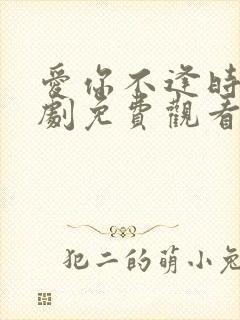 愛你不逢時
劇免費觀看
犯二的萌小兔